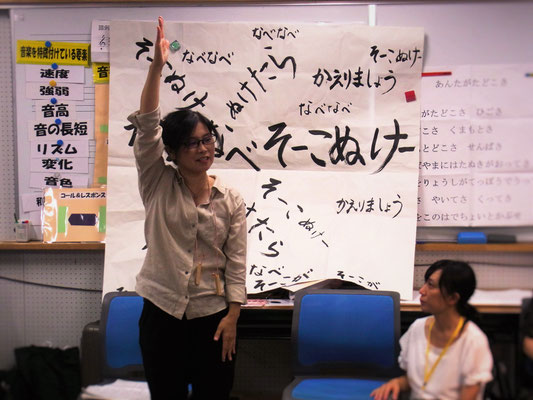 音楽を特徴付けている要素
速度
強弱
音高
音の長短
リズム
変化
音色
コール&レスポンス
なべなべ
そーこぬけー
なべなべ
そこぬけ
ぬけたら
かえりましょう
なべなべ
べ
そーこぬけー
そーこ
ぬけー
けたら
かえりましょう
なべーが
そーこが
そこが
あんたがたどこさ
がたどこさ ひごさ
さ くまもとさ
とどこさ せんばさ
ばやまにはたぬきがおってさ
をりょうしがてっぽうで
さ やいてさ くってさ
をこのはでちょいとかぶせ